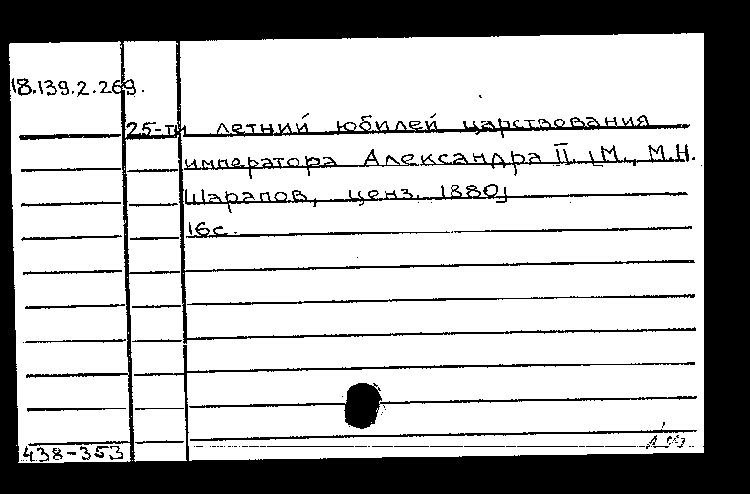 18.139.2.269.
25-ти летний юбилей царствования
императора Александра II. [М., М.Н.
Шарапов, ценз. 1880]
16с.
438-353